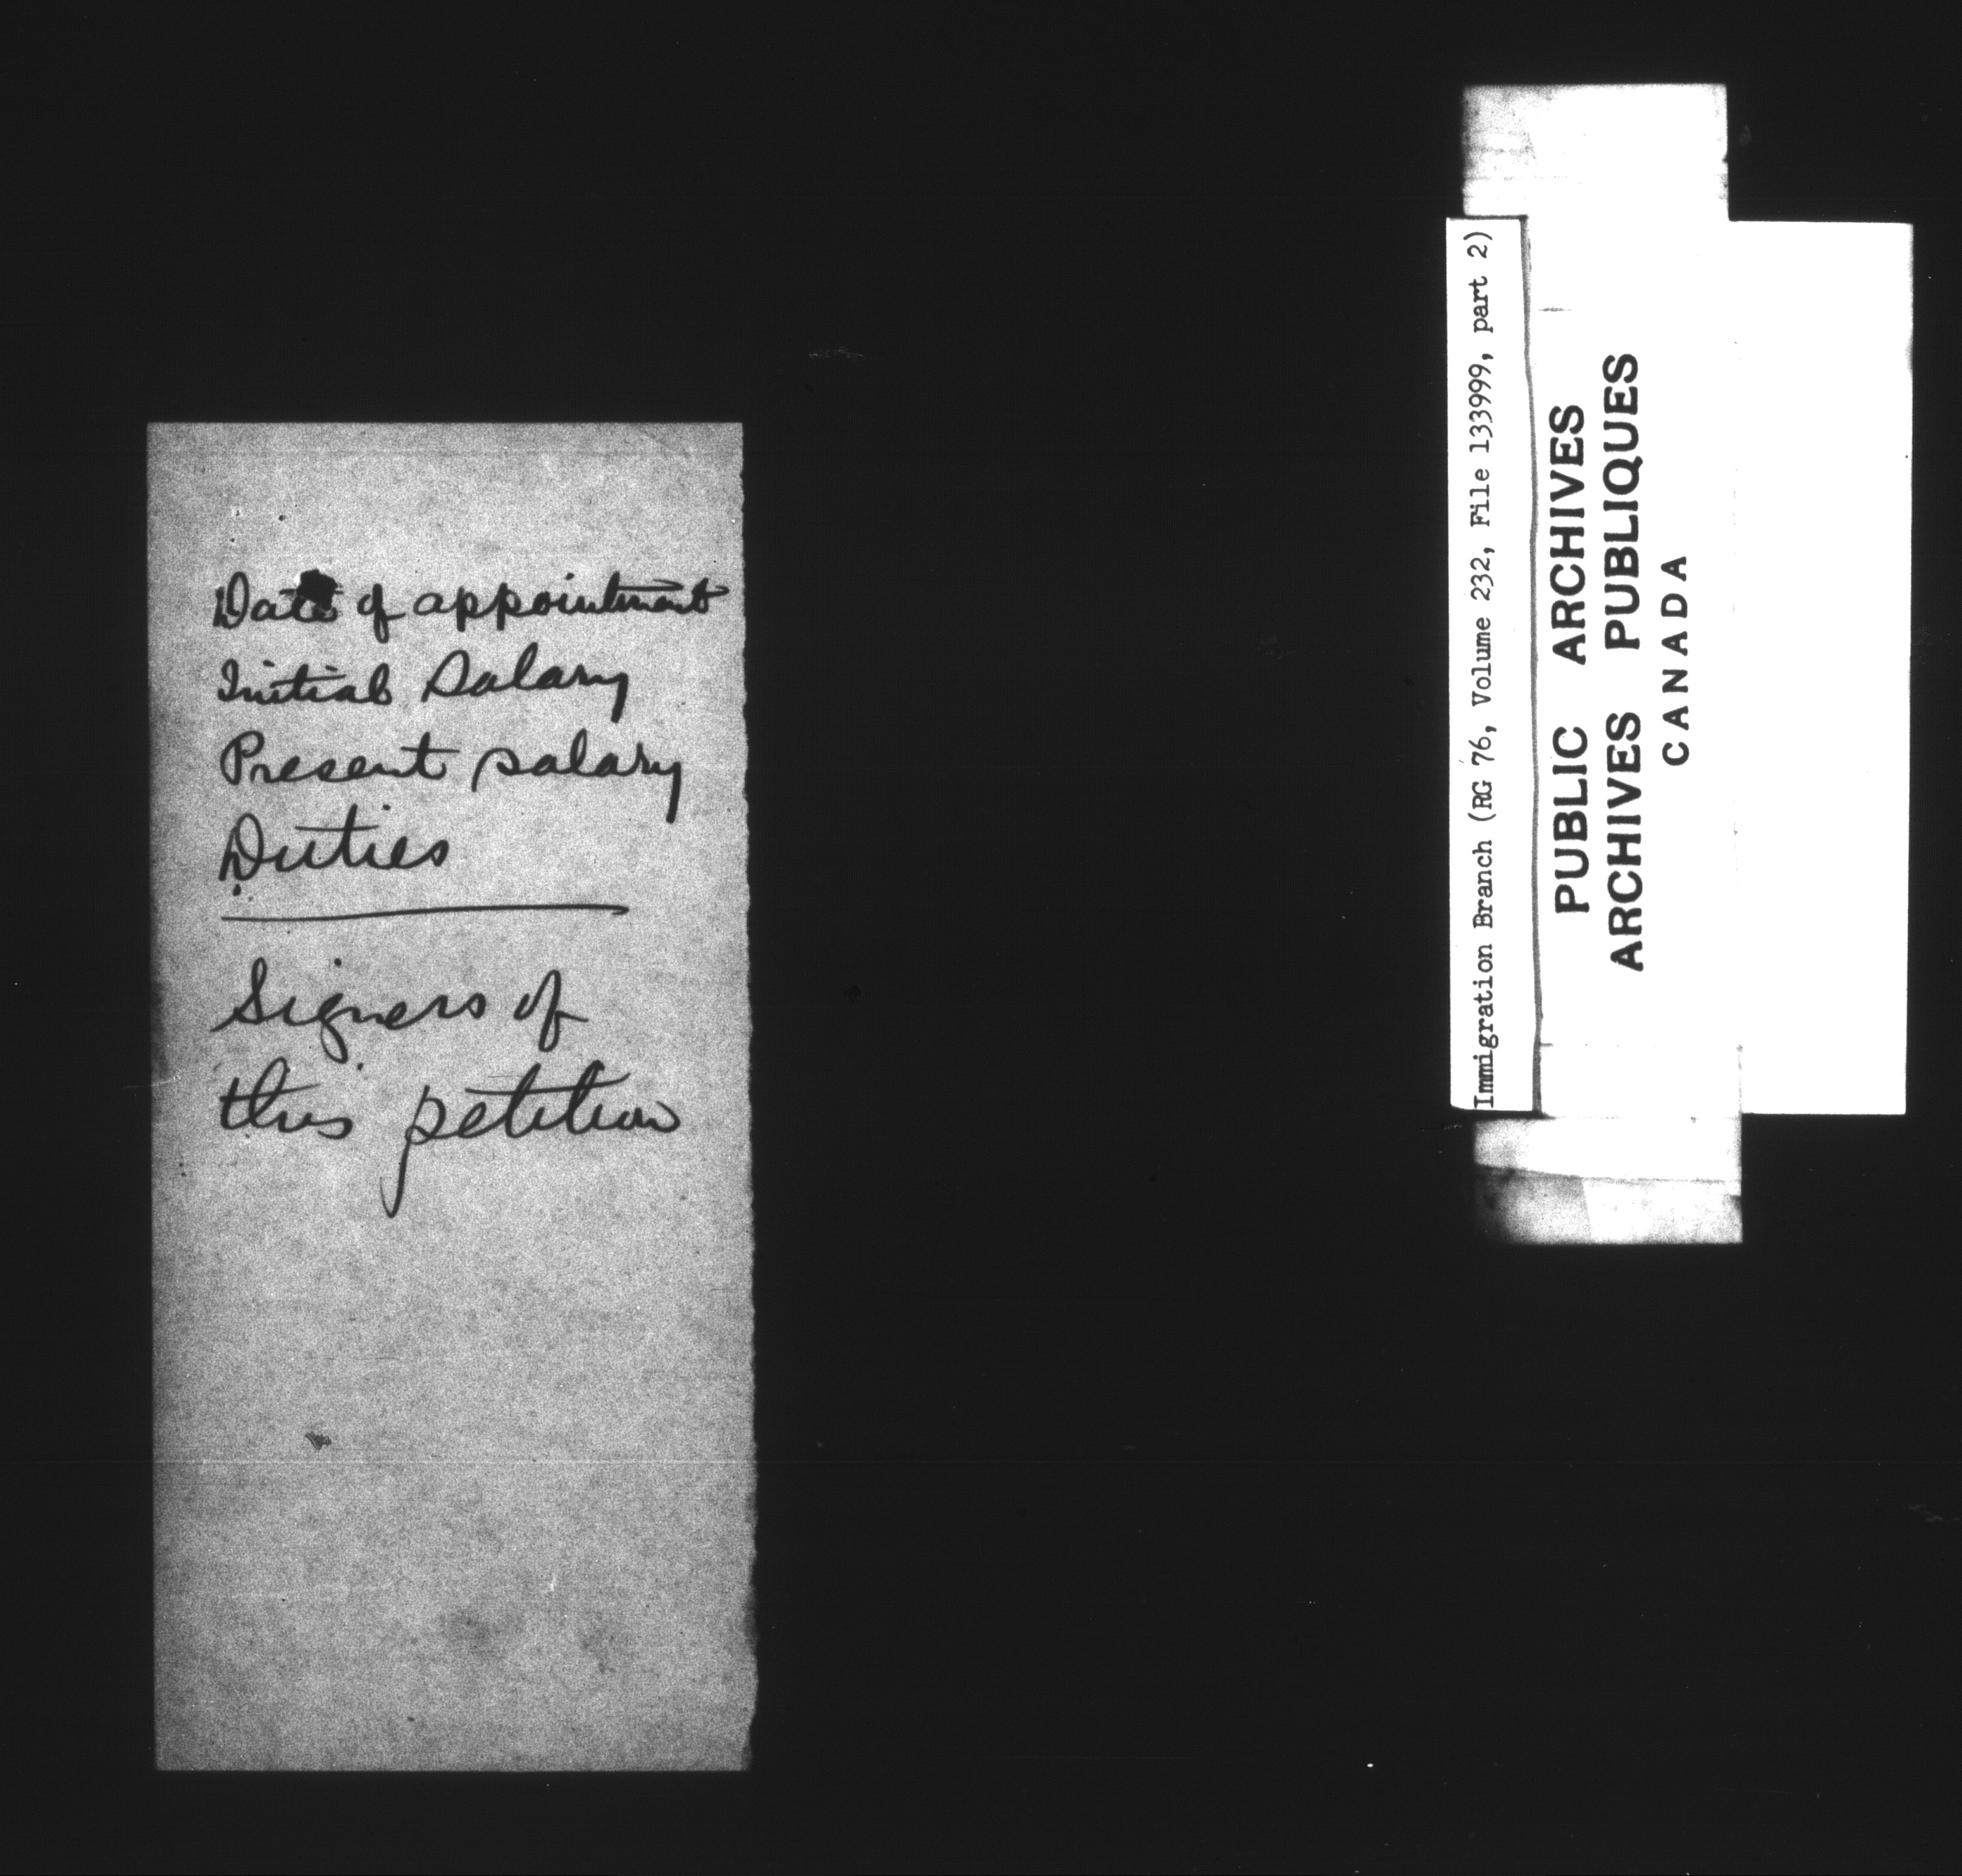 Date of appointment
Initial Salary
Present salary
Duties
Signers of
this petition
Immigration Branch (RG 76, Volume 232, File 133999, part 2)
PUBLIC ARCHIVES
ARCHIVES PUBLIQUES
CANADA